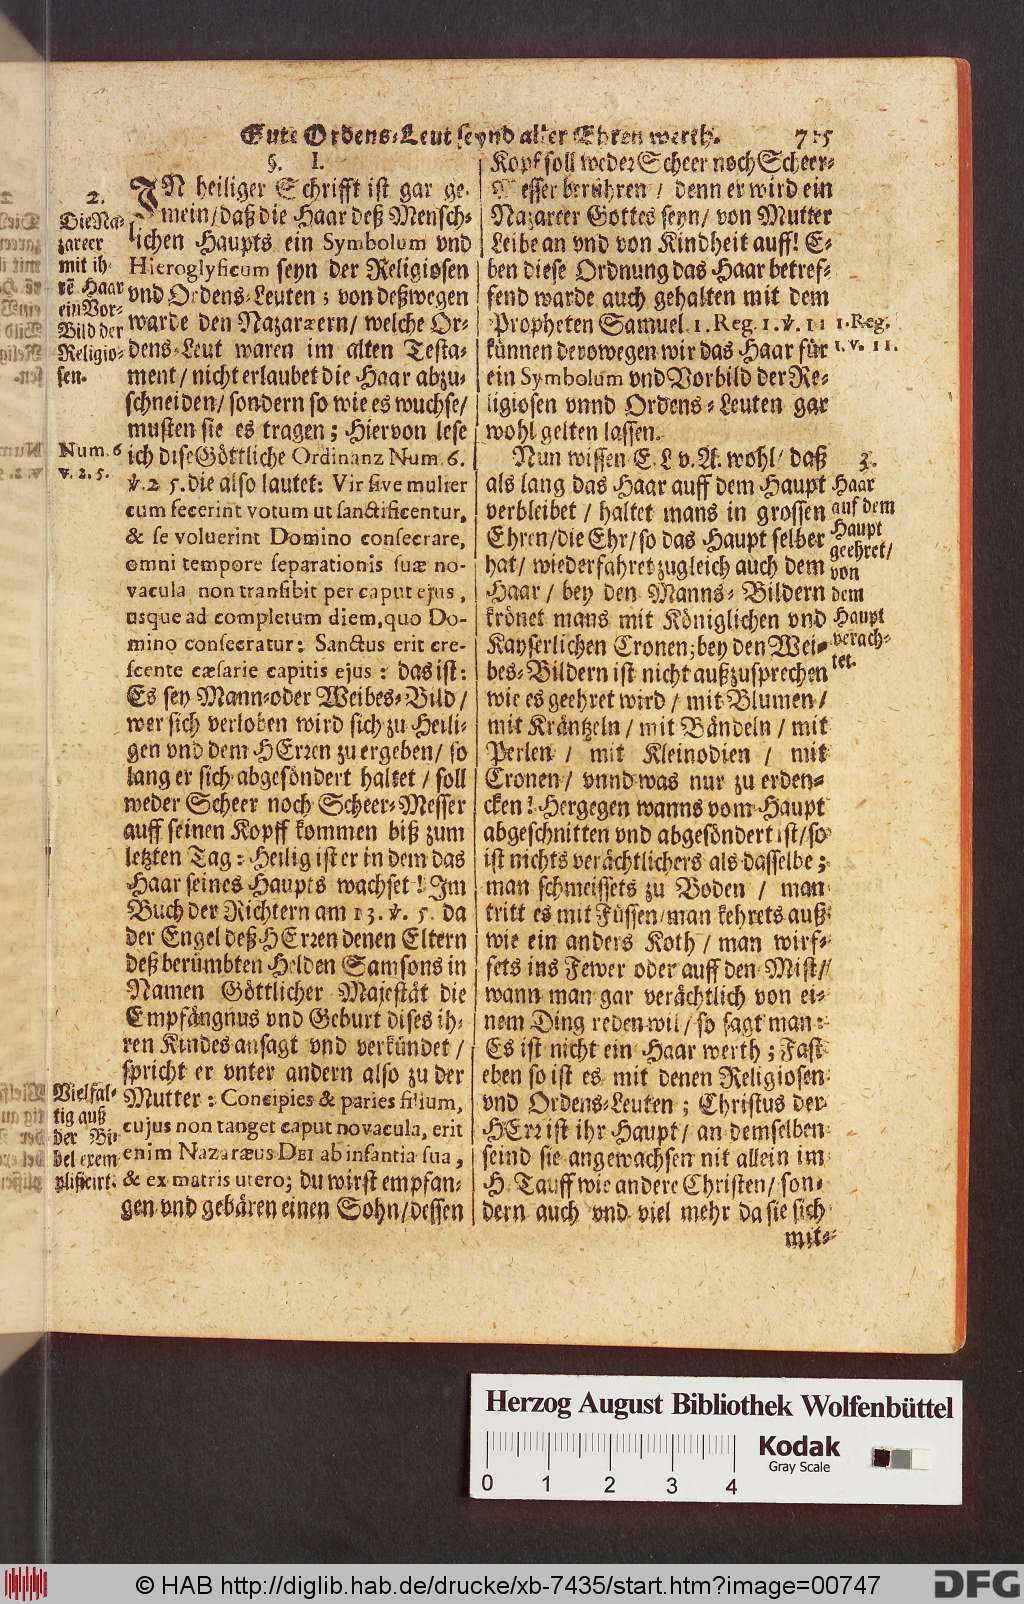 Gute Ordens-Leut seynd aller Ehren werth. 715
§. I.
IN heiliger Schrifft ist gar ge-
mein/ daß die Haar deß Mensch-
lichen Haupts ein Symbolum vnd
Hieroglyficum seyn der Religiosen
vnd Ordens-Leuten; von deßwegen
warde den Nazaræern/ welche Or-
dens-Leut waren im alten Testa-
ment/ nicht erlaubet die Haar abzu-
schneiden/ sondern so wie es wuchse/
musten sie es tragen; Hiervon lese
ich dise Göttliche Ordinanz Num. 6.
℣. 2 5. die also lautet: Vir sive mulier
cum fecerint votum ut sanctificentur,
& se voluerint Domino consecrare,
omni tempore separationis suæ no-
vacula non transibit per caput ejus,
usque ad completum diem, quo Do-
mino consecratur: Sanctus erit cre-
scente cæsarie capitis ejus: das ist:
Es sey Mann- oder Weibes-Bild/
wer sich verloben wird sich zu Heili-
gen vnd dem HErren zu ergeben/ so
lang er sich abgesöndert haltet/ soll
weder Scheer noch Scheer-Messer
auff seinen Kopff kommen biß zum
letzten Tag: Heilig ist er in dem das
Haar seines Haupts wachset! Im
Buch der Richtern am 13. ℣. 5. da
der Engel deß HErren denen Eltern
deß berümbten Helden Samsons in
Namen Göttlicher Majestät die
Empfängnus vnd Geburt dises ih-
ren Kindes ansagt vnd verkündet/
spricht er vnter andern also zu der
Mutter: Concipies & paries filium,
cujus non tanget caput novacula, erit
enim Nazaræus DEI ab infantia sua,
& ex matris utero; du wirst empfan-
gen vnd gebären einen Sohn/ dessen
2.
Die Na-
zareer
mit ih-
rē Haar
ein Vor-
Bild der
Religio-
sen.
Num. 6
v. 2. 5.
Vielfäl-
tig auß
der Bi-
bel exem
plificirt.
Kopf soll weder Scheer noch Scheer-
Messer berühren/ denn er wird ein
Nazareer Gottes seyn/ von Mutter
Leibe an vnd von Kindheit auff! E-
ben diese Ordnung das Haar betref-
fend warde auch gehalten mit dem
Propheten Samuel. 1. Reg. 1. ℣. 11
künnen derowegen wir das Haar für
ein Symbolum vnd Vorbild der Re-
ligiosen vnnd Ordens-Leuten gar
wohl gelten lassen.
Nun wissen E. L v. A. wohl/ daß
als lang das Haar auff dem Haupt
verbleibet/ haltet mans in grossen
Ehren/ die Ehr/ so das Haupt selber
hat/ wiederfahret zugleich auch dem
Haar/ bey den Manns-Bildern
krönet mans mit Königlichen vnd
Kayserlichen Cronen; bey den Wei-
bes-Bildern ist nicht außzusprechen
wie es geehret wird/ mit Blumen/
mit Kräntzeln/ mit Bändeln/ mit
Perlen/ mit Kleinodien/ mit
Cronen/ vnnd was nur zu erden-
cken! Hergegen wanns vom Haupt
abgeschnitten vnd abgesöndert ist/ so
ist nichts verächtlichers als dasselbe;
man schmeissets zu Boden/ man
tritt es mit Füssen/ man kehrets auß
wie ein anders Koth/ man wirf-
fets ins Fewer oder auff den Mist/
wann man gar verächtlich von ei-
nem Ding reden wil/ so sagt man:
Es ist nicht ein Haar werth; Fast
eben so ist es mit denen Religiosen
vnd Ordens-Leuten; Christus der
HErr ist ihr Haupt/ an demselben
seind sie angewachsen nit allein im
H. Tauff wie andere Christen/ son-
dern auch vnd viel mehr da sie sich
mit-
1. Reg.
1. v. 11.
3.
Haar
auf dem
Haupt
geehret/
von
dem
Haupt
verach-
tet.
Herzog August Bibliothek Wolfenbüttel
Kodak
Gray Scale
0 1 2 3 4
© HAB http://diglib.hab.de/drucke/xb-7435/start.htm?image=00747
DFG